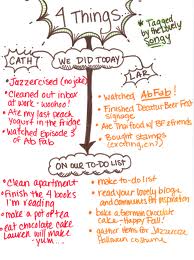 4 Things
* Tagged
by the lovely
Songy
WE DID TODAY
CATH
LAR
• Jazzercised (no joke)
• Cleaned out inbox
at work - woohoo!
• Ate my last peach
Yogurt in the fridge
• Watched Episode 3
of Ab Fab
• Watched Ab Fab!
• Finished Decatur Beer Fest
signage
• Ate Thai food w/ BF & friends
• Bought stamps
(exciting, eh?)
ON OUR TO-DO LIST
• Clean apartment
• Finish the 4 books
I'm reading
• make a pot of tea
• eat chocolate cake
Lauren will make
yum...
• make to-do list
• read your lovely blogs
and comments for inspiration
• bake a German chocolate
cake - Happy Fall!
• gather items for Jazzercise
Halloween costume